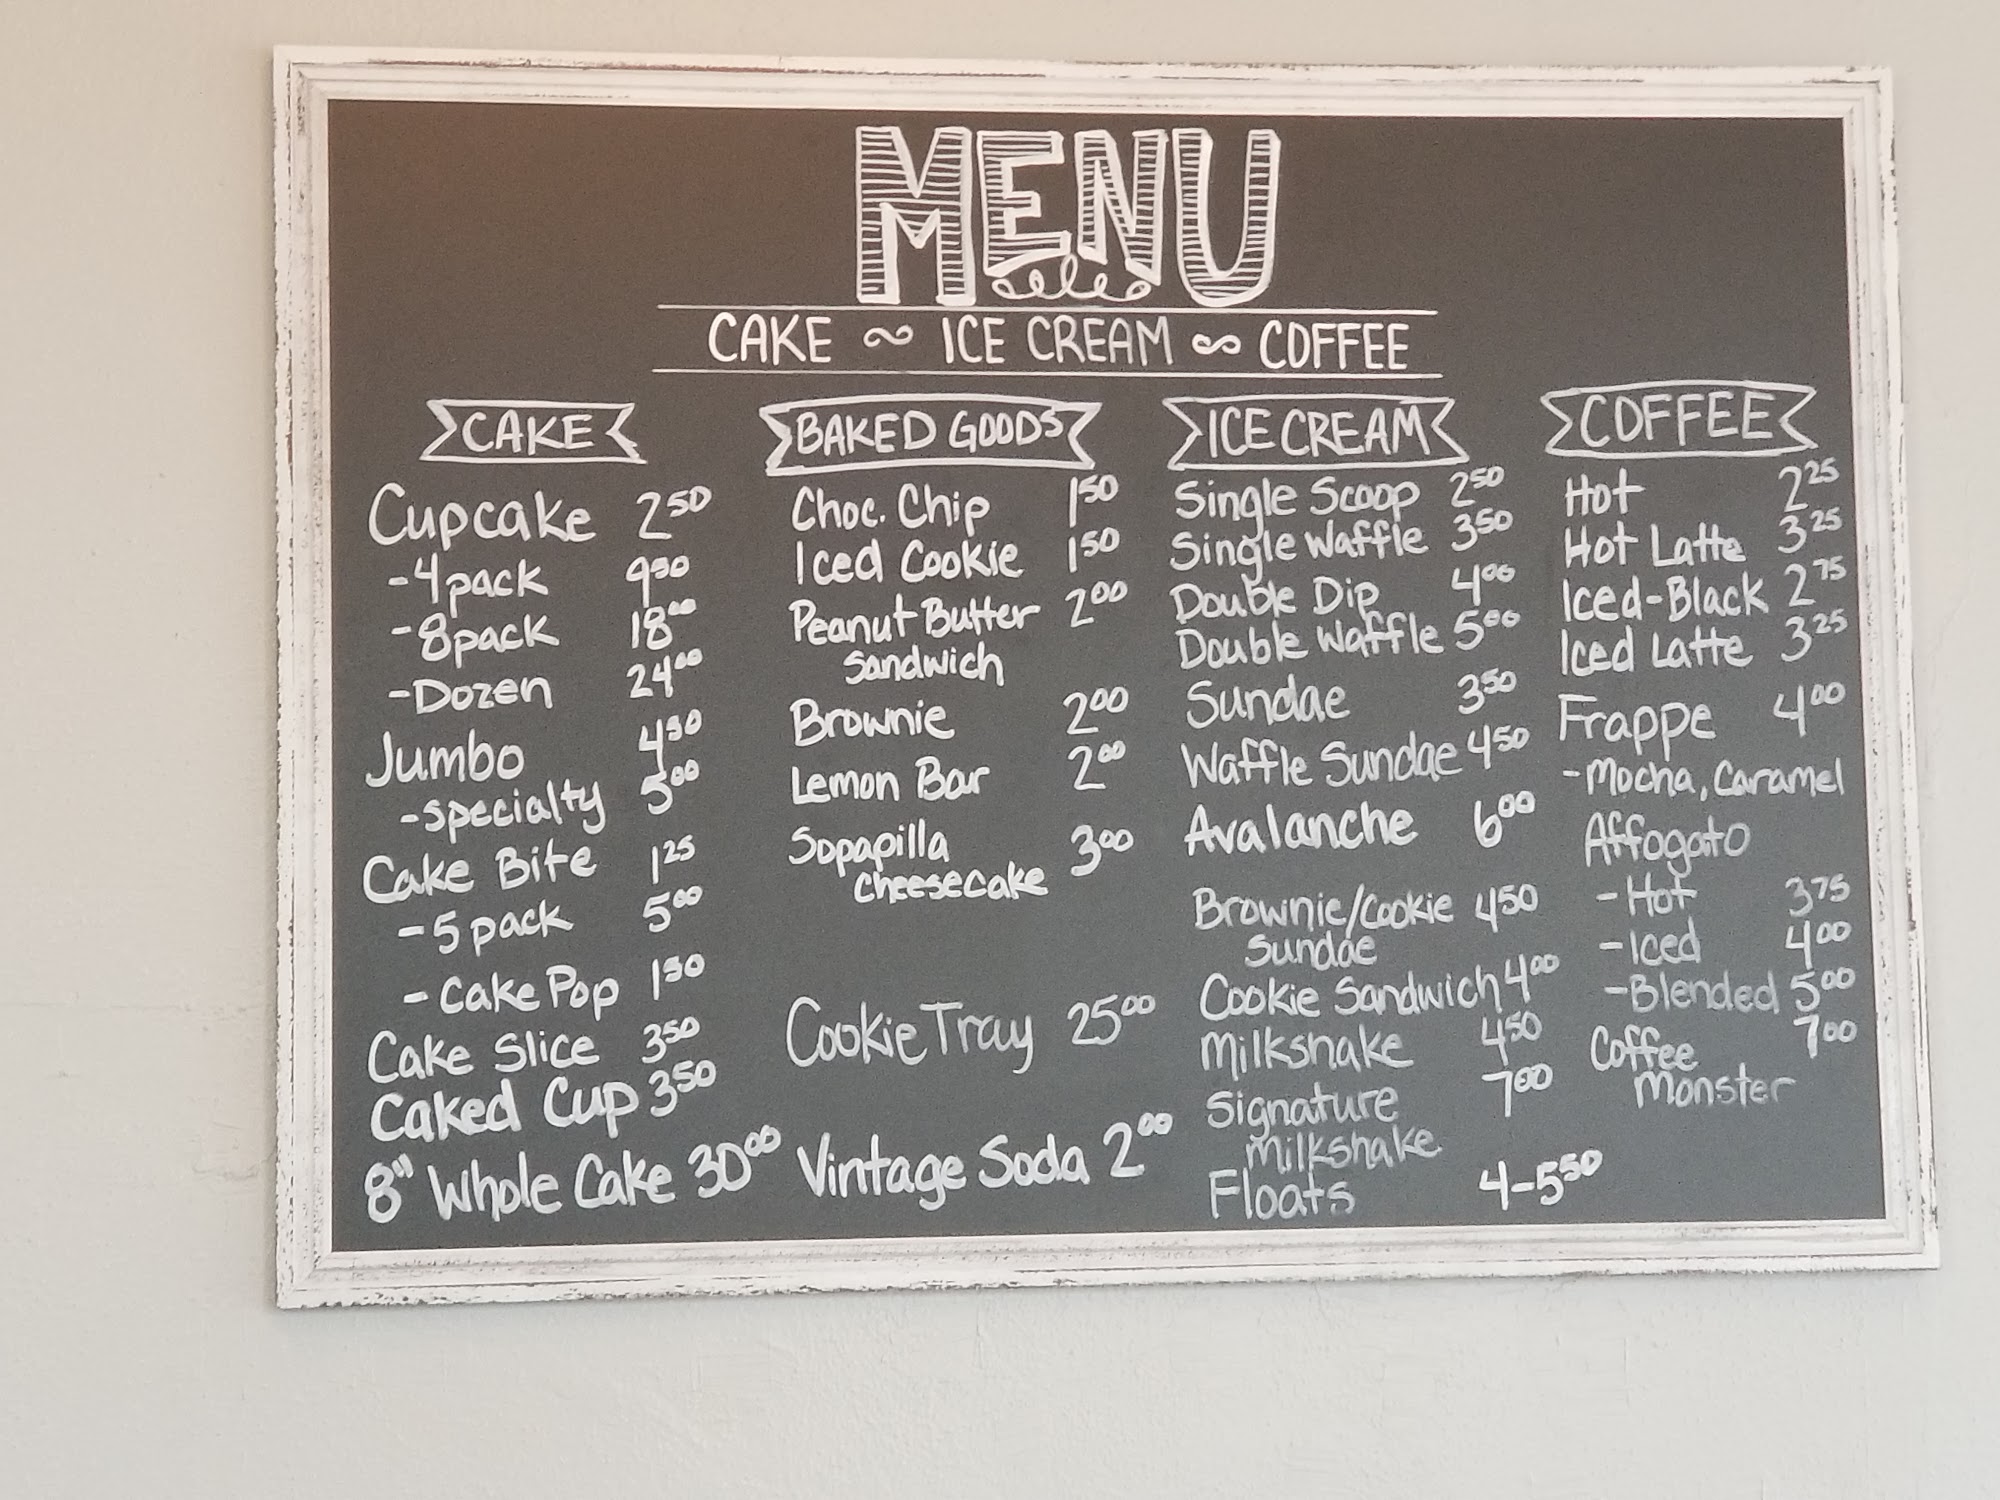 MENU
CAKE ~ ICE CREAM ~ COFFEE
CAKE
Cupcake 2 50
-4pack 9 50
-8pack 18 00
-Dozen 24 00
Jumbo 4 50
-specialty 5 00
Cake Bite 1 25
-5 pack 5 00
-Cake Pop 1 50
Cake Slice 3 50
Caked Cup 3 50
8" Whole Cake 30 00
BAKED GOODS
Choc. Chip 1 50
Iced Cookie 1 50
Peanut Butter 2 00
Sandwich
Brownie 2 00
Lemon Bar 2 00
Sopapilla 3 00
Cheesecake
Cookie Tray 25 00
Vintage Soda 2 00
ICE CREAM
Single Scoop 2 50
Single Waffle 3 50
Double Dip 4 00
Double Waffle 5 00
Sundae 3 50
Waffle Sundae 4 50
Avalanche 6 00
Brownie/Cookie 4 50
Sundae
Cookie Sandwich 4 00
Milkshake 4 50
Signature 7 00
Milkshake
Floats 4-5 50
COFFEE
Hot 2 25
Hot Latte 3 25
Iced-Black 2 75
Iced Latte 3 25
Frappe 4 00
-Mocha, Caramel
Affogato
-Hot 3 75
-Iced 4 00
-Blended 5 00
Coffee 7 00
Monster